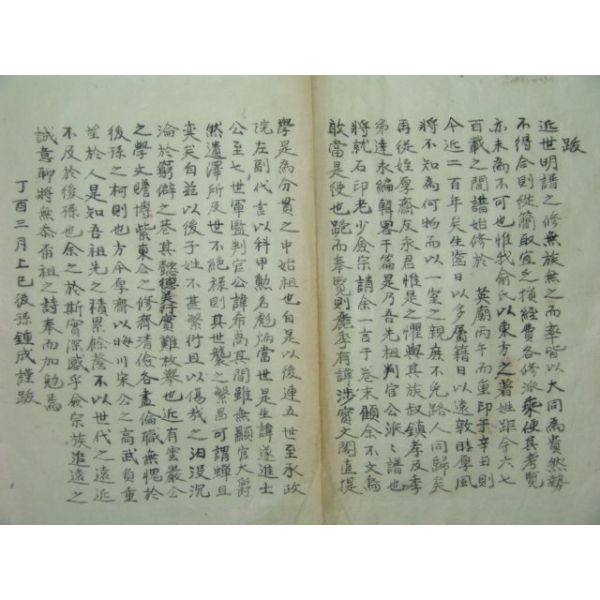 跋
近世明譜之修無族無之而率皆以大同為貴然勢
不得合則從簡取宜乏損經費各修派乘便其考覽
亦未為不可也惟我俞氏以東方之著姓距今六七
百載之間譜始修於 英廟丙午而重印于辛丑則
今近二百年矣生齒日以多屬籍日以遠敦睦厚風
將不知為何物而以一室之親庶不免路人同歸矣
再從姪厚齋友永君惟是之懼與其族叔鎮孝及季
弟達永編輯畧干篇是乃吾先祖判官公派之譜也
將就石印老少僉宗請余一言于卷末顧余不文焉
敢當是役也跪而奉覽則麗季有諱涉寶文閣直提
學是為分貫之中始祖也自是以後連五世至承政
院左副代言以科甲勳名彪炳當世是生諱遂進士
公至七世軍監判官公諱希高其間雖無顯官大爵
然遺澤所及世不絕祿則其世襲之繁昌可謂蟬且
奕矣自茲以後子姓不甚繁衍且以傷哉之汨沒沉
淪於窮僻之巷其懿德美行實難枚擧也近有雲巖公
之學文贍博紫東公之修齊清儉各盡倫職無愧於
後孫之柯則也方今厚齋以晦川宋公之高武負重
望於人是知吾祖先之積累餘蔭不以世代之遠近
不及於後孫也余之於斯實深感乎僉宗族追遠之
誠意聊將無忝爾祖之詩奉而加勉焉
丁酉三月上巳後孫鍾成謹跋